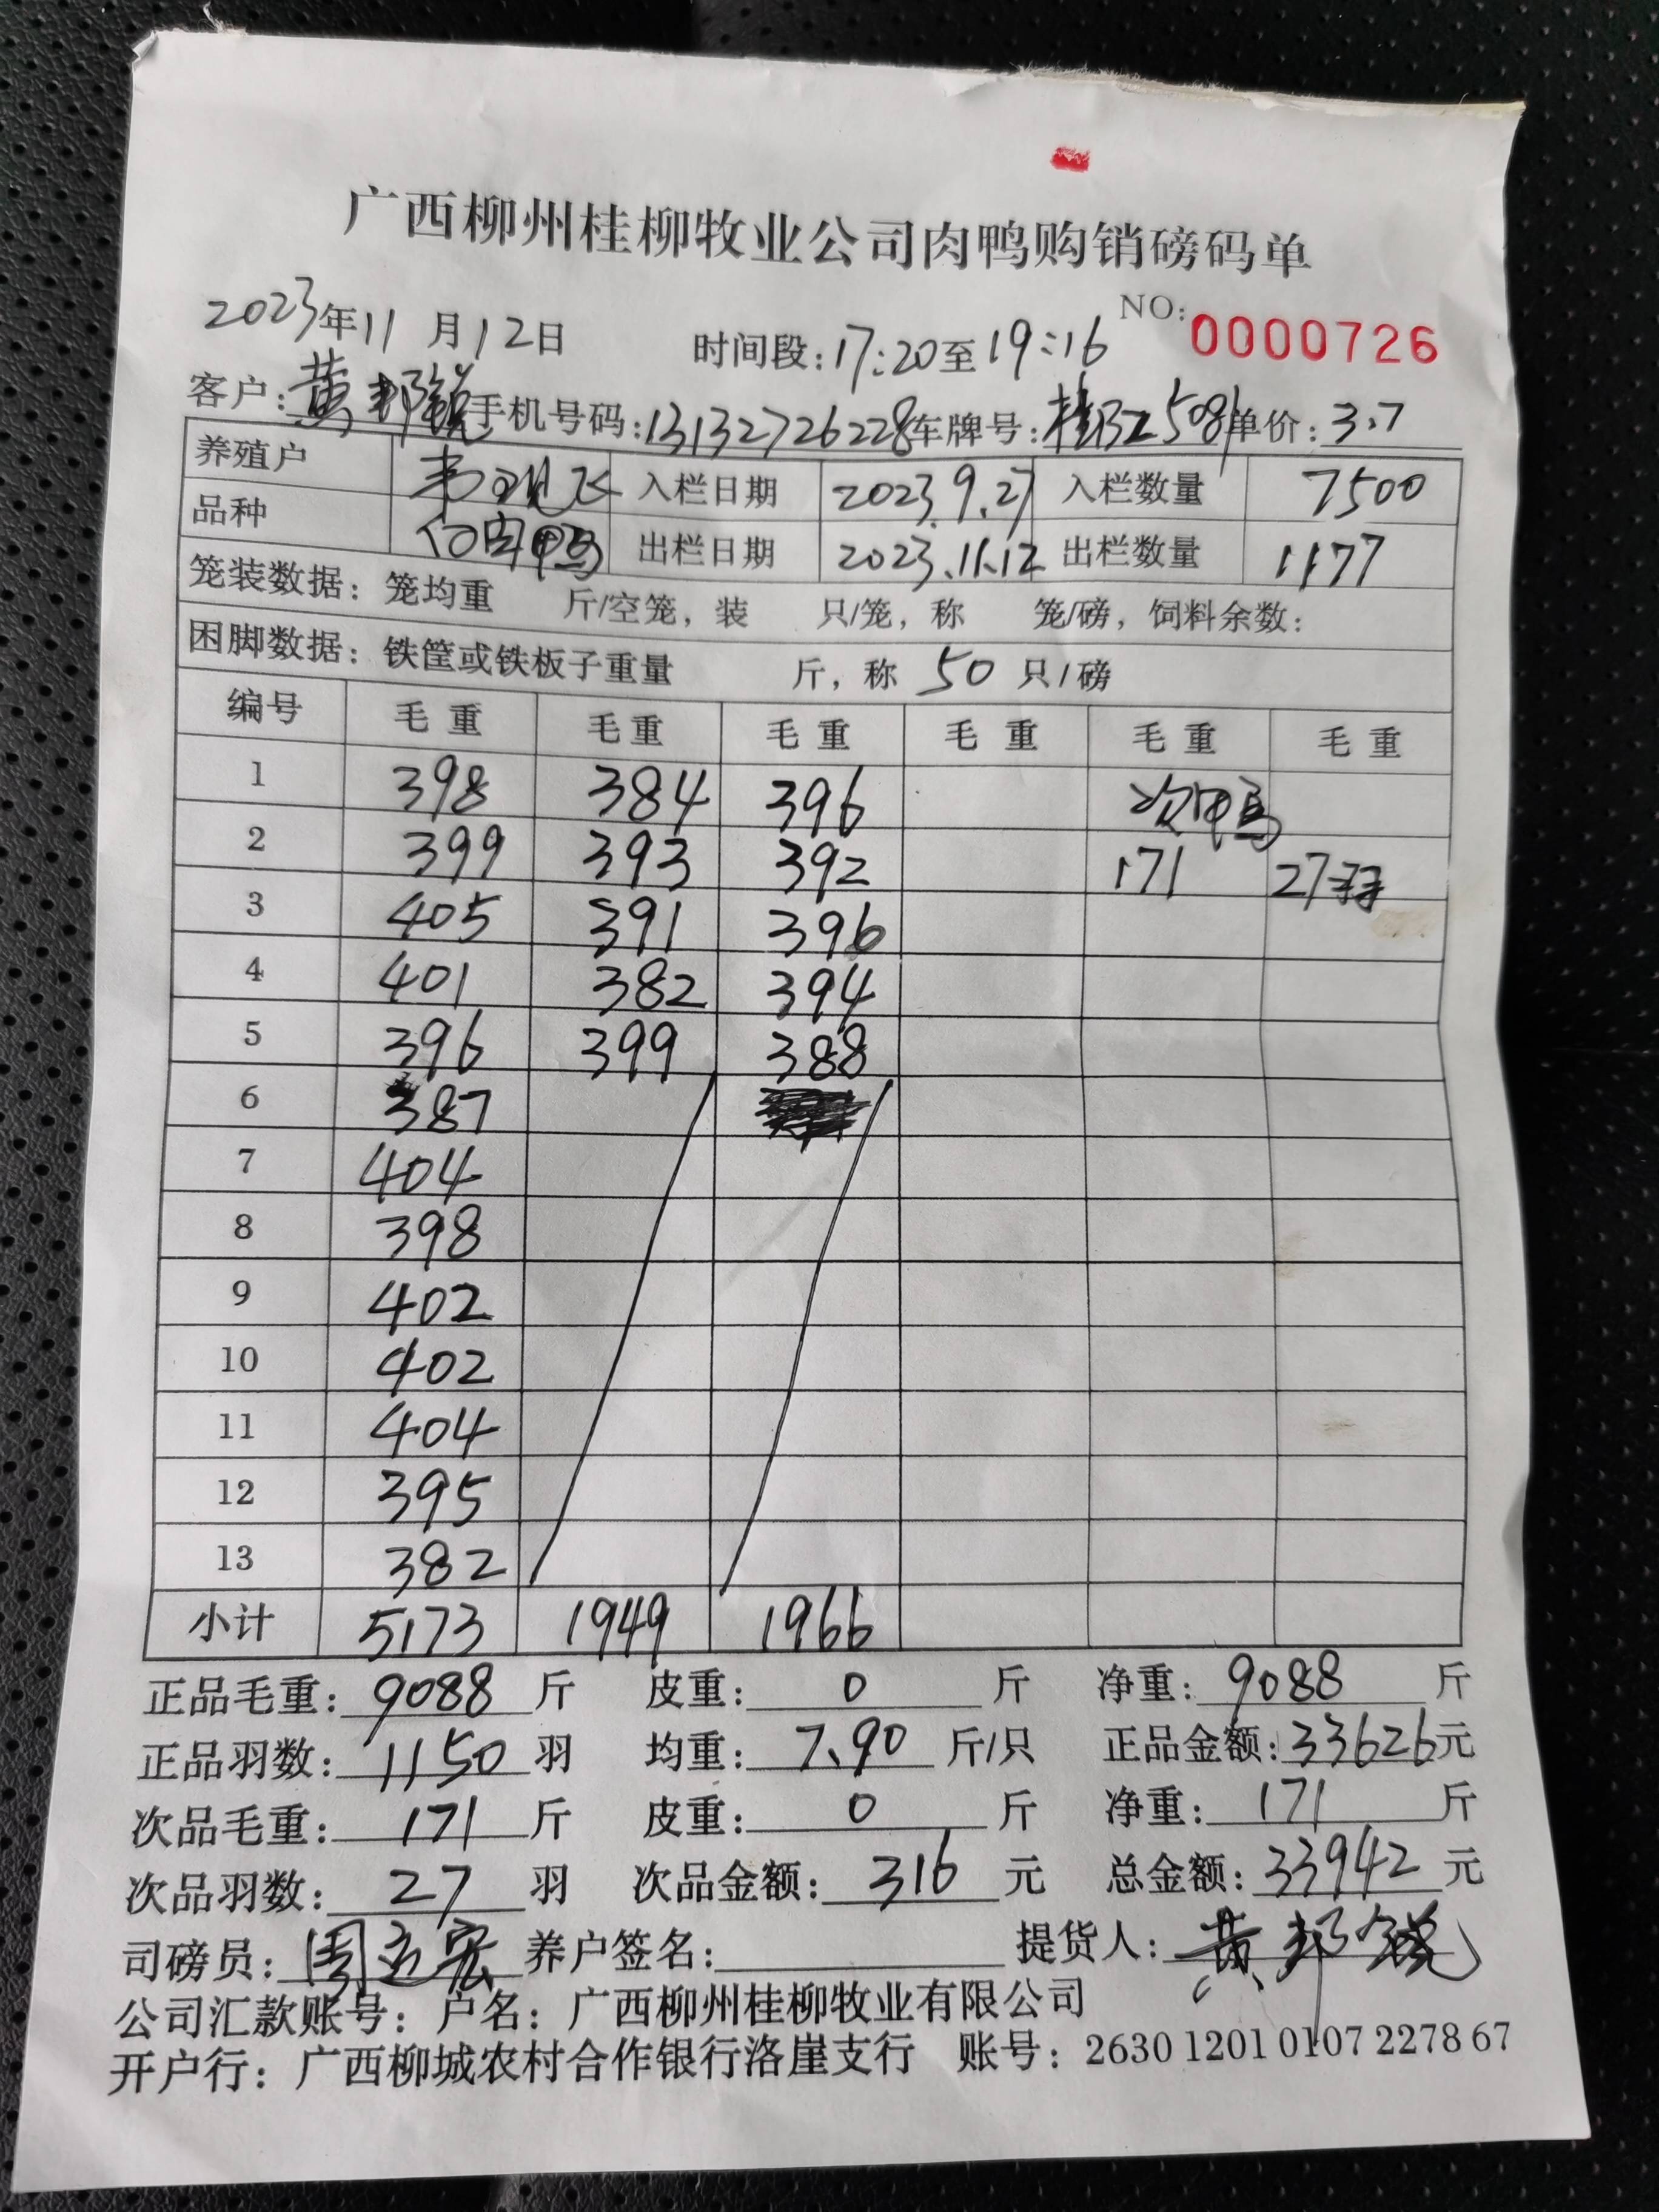 广西柳州桂柳牧业公司肉鸭购销磅码单
2023年11月12日 时间段:17:20至19:16 NO:0000726
客户:黄邦锐 手机号码:13132726228 车牌号: 单价:3.7
养殖户 韦 飞 入栏日期 2023.9.27 入栏数量 7500
品种 白肉鸭 出栏日期 2023.11.12 出栏数量 1177
笼装数据:笼均重 斤/空笼,装 只/笼,称 笼/磅,饲料余数:
困脚数据:铁筐或铁板子重量 斤,称 50 只/磅
编号 毛重 毛重 毛重 毛重 毛重 毛重
1 398 384 396 次鸭
2 399 393 392 171 27羽
3 405 391 396
4 401 382 394
5 396 399 388
6 387
7 404
8 398
9 402
10 402
11 404
12 395
13 382
小计 5173 1949 1966
正品毛重:9088斤 皮重:0斤 净重:9088斤
正品羽数:1150羽 均重:7.90斤/只 正品金额:33626元
次品毛重:171斤 皮重:0斤 净重:171斤
次品羽数:27羽 次品金额:316元 总金额:33942元
司磅员:周立宏 养户签名: 提货人:黄邦锐
公司汇款账号:户名:广西柳州桂柳牧业有限公司
开户行:广西柳城农村合作银行洛崖支行 账号:2630 1201 0107 2278 67